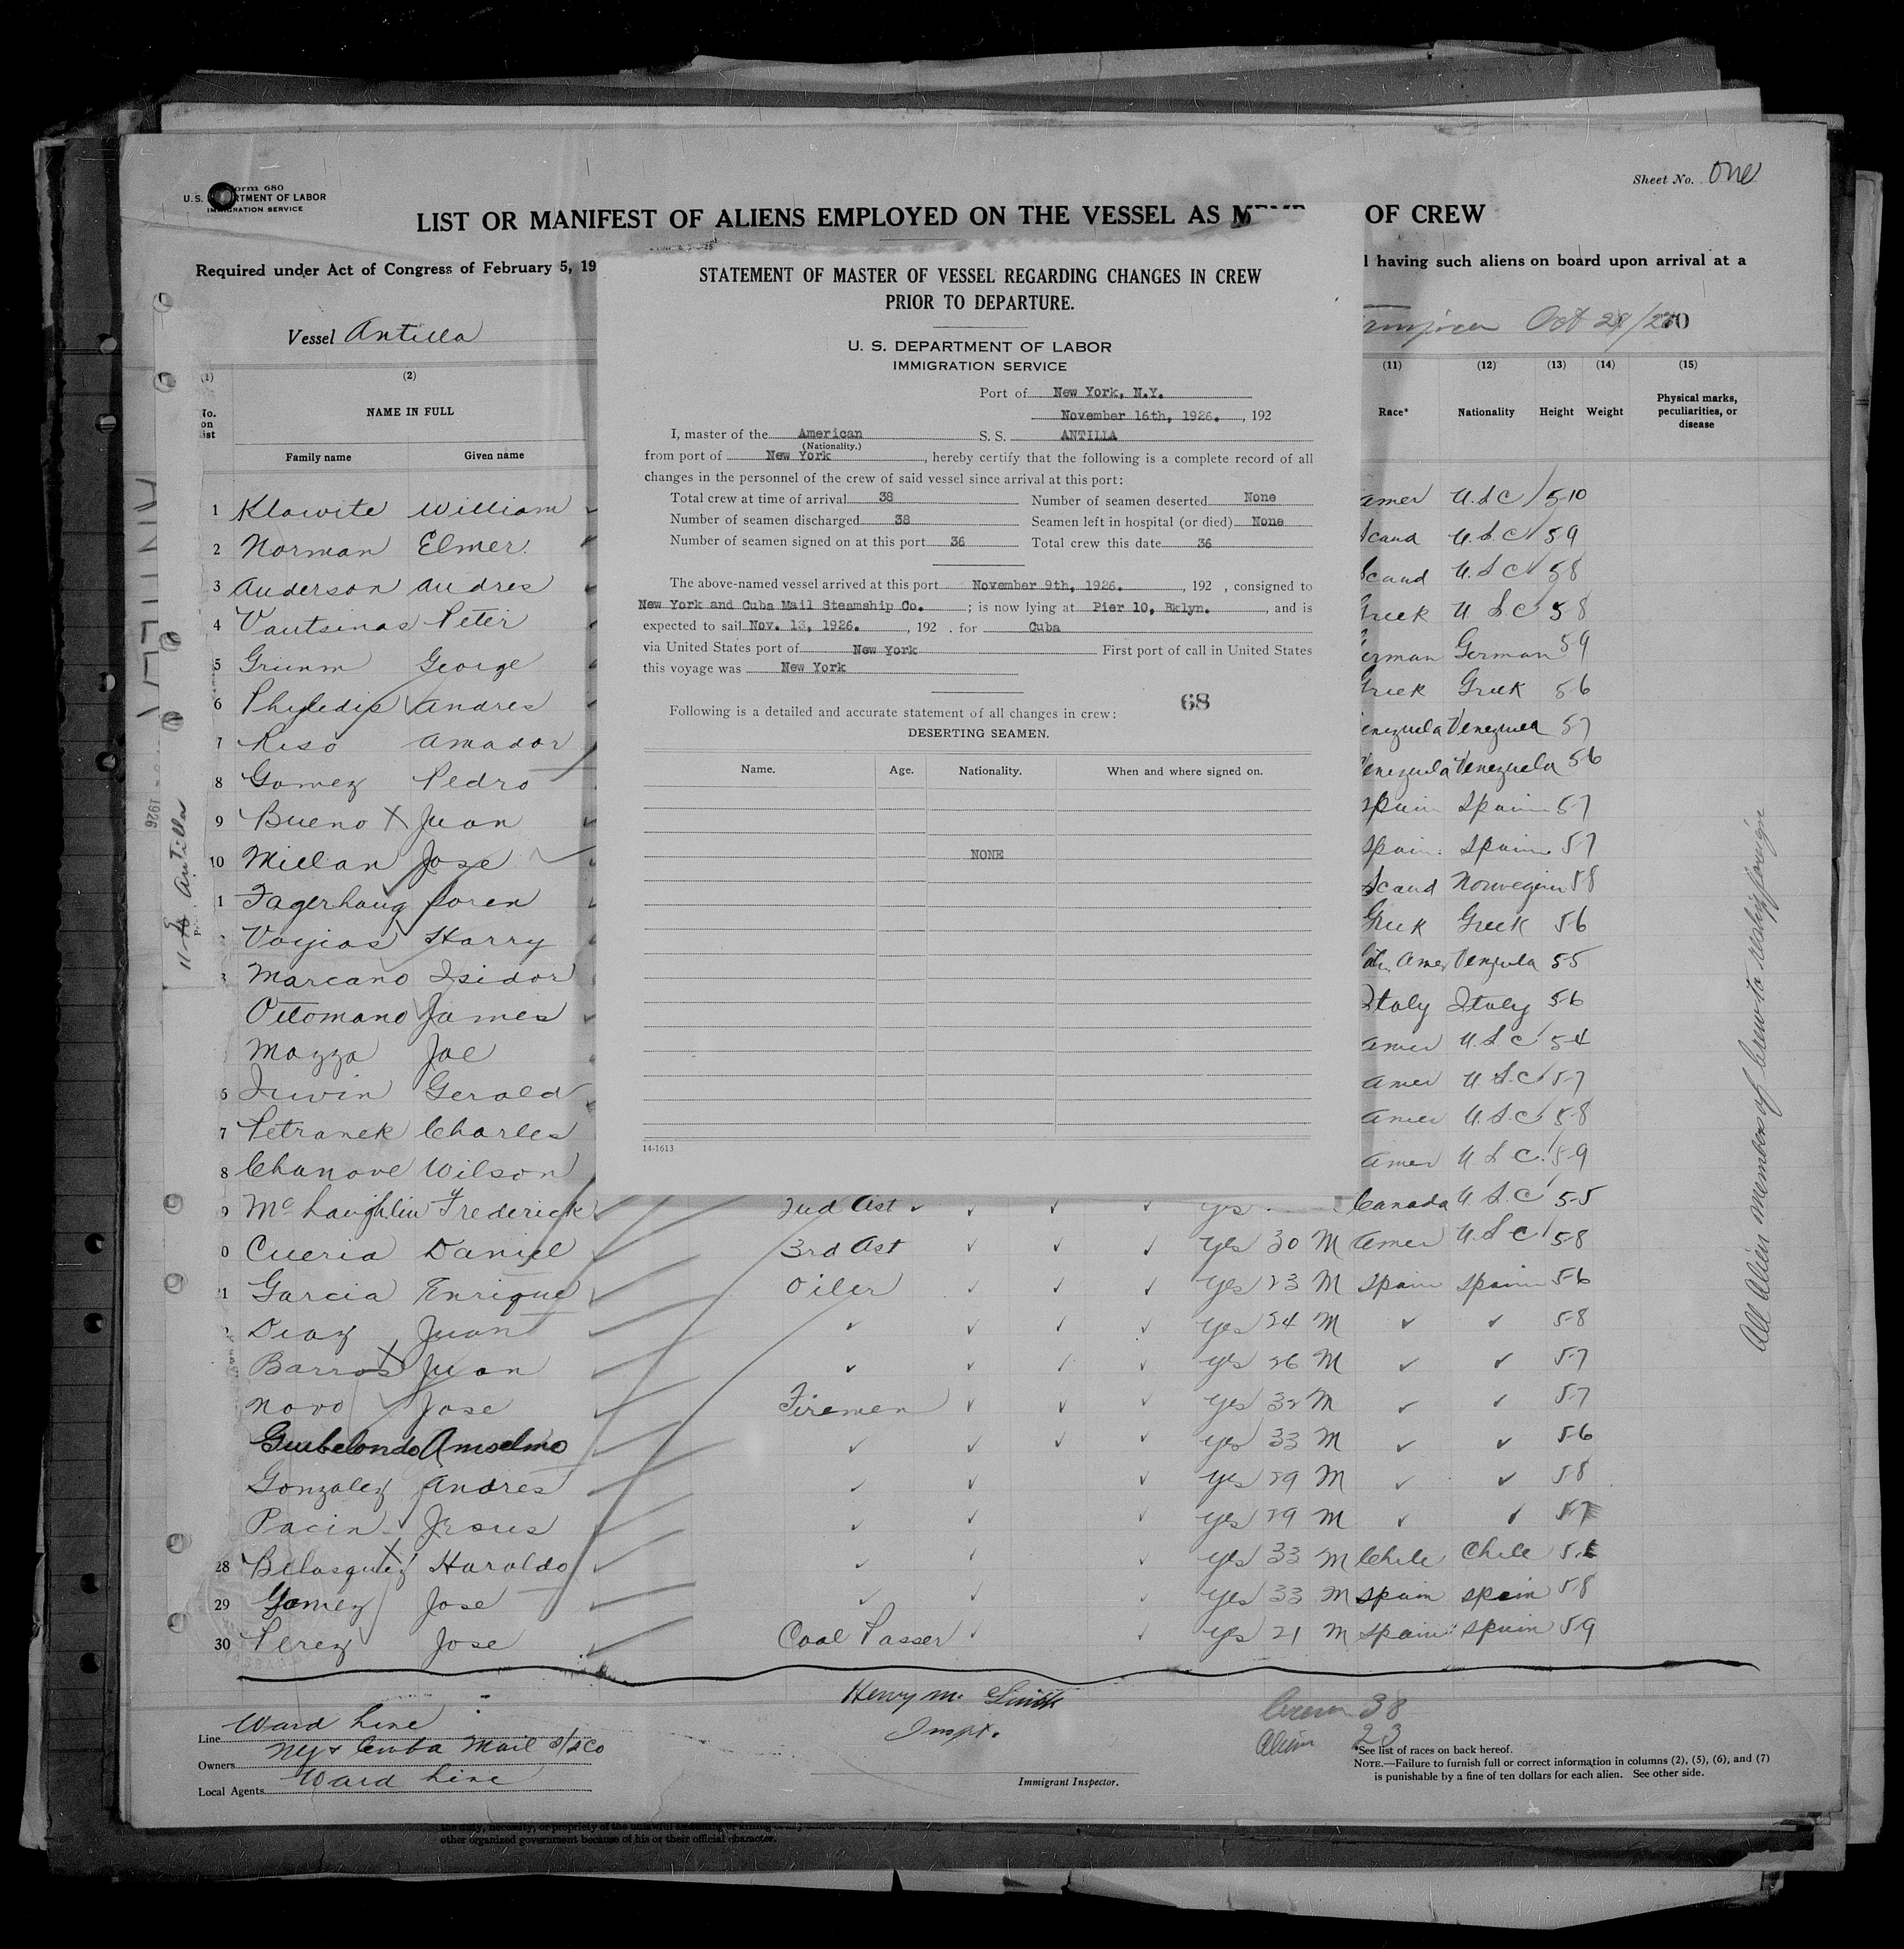 Sheet No. One
Form 680
U.S. DEPARTMENT OF LABOR
IMMIGRATION SERVICE
LIST OR MANIFEST OF ALIENS EMPLOYED ON THE VESSEL AS OF CREW
Required under Act of Congress of February 5, 19
having such aliens on board upon arrival at a
Vessel Antilla
Oct
(1) (2)
No. on list
NAME IN FULL
Family name Given name
(11) (12) (13) (14) (15)
Race* Nationality Height Weight Physical marks, peculiarities, or disease
STATEMENT OF MASTER OF VESSEL REGARDING CHANGES IN CREW
PRIOR TO DEPARTURE.
U. S. DEPARTMENT OF LABOR
IMMIGRATION SERVICE
Port of New York, N.Y.
November 16th, 1926. , 192
I, master of the American S. S. ANTILLA
(Nationality.)
from port of New York , hereby certify that the following is a complete record of all
changes in the personnel of the crew of said vessel since arrival at this port:
Total crew at time of arrival 38 Number of seamen deserted None
Number of seamen discharged 38 Seamen left in hospital (or died) None
Number of seamen signed on at this port 36 Total crew this date 36
The above-named vessel arrived at this port November 9th, 1926. , 192 , consigned to
New York and Cuba Mail Steamship Co. ; is now lying at Pier 10, Bklyn. , and is
expected to sail Nov. 13, 1926. , 192 . for Cuba
via United States port of New York First port of call in United States
this voyage was New York
68
Following is a detailed and accurate statement of all changes in crew:
DESERTING SEAMEN.
Name. Age. Nationality. When and where signed on.
NONE
14-1613
1 Klawite William Amer U.S.C 5-10
2 Norman Elmer Scand U.S.C 59
3 Anderson Andres Scand U.S.C 58
4 Vautsinas Peter Greek U.S.C 58
5 Grimm George German German 59
6 Andres Greek Greek 56
7 Riso Amador Venezuela Venezuela 57
8 Gomez Pedro Venezuela Venezuela 56
9 Bueno X Juan Spain Spain 57
10 Millan Jose Spain Spain 57
1 Fagerhaug Soren Scand Norwegian 58
Voyias Harry Greek Greek 56
3 Marcano Isidor Amer Venzula 55
Ottomano James Italy Italy 56
Mazza Joe Amer U.S.C 54
6 Irwin Gerald Amer U.S.C 57
7 Petranek Charles Amer U.S.C 58
8 Chanove Wilson Amer U.S.C 59
9 McLaughlin Frederick 2nd Ast yes Canada U.S.C 55
0 Cueria Daniel 3rd Ast yes 30 M Amer U.S.C 58
21 Garcia Enrique Oiler yes 23 M Spain Spain 56
Diaz Juan yes 24 M 58
Barros X Juan yes 26 M 57
Novo Jose Firemen yes 32 M 57
Anselmo yes 33 M 56
Gonzalez Andres yes 29 M 58
Pacin Jesus yes 29 M 57
28 Belasquez Haroldo yes 33 M Chile Chile
29 Gomez Jose yes 33 M Spain Spain 58
30 Perez Jose Coal Passer yes 21 M Spain Spain 59
Line Ward Line
Owners NY & Cuba Mail S/S Co
Local Agents Ward Line
Henry M. Smith
Inspt.
Immigrant Inspector.
Crew 38
Alien 23
*See list of races on back hereof.
NOTE.—Failure to furnish full or correct information in columns (2), (5), (6), and (7)
is punishable by a fine of ten dollars for each alien. See other side.
All Alien members of Crew to reship foreign
ANTILLA
1926
Antilla
other organized government because of his or their official character.